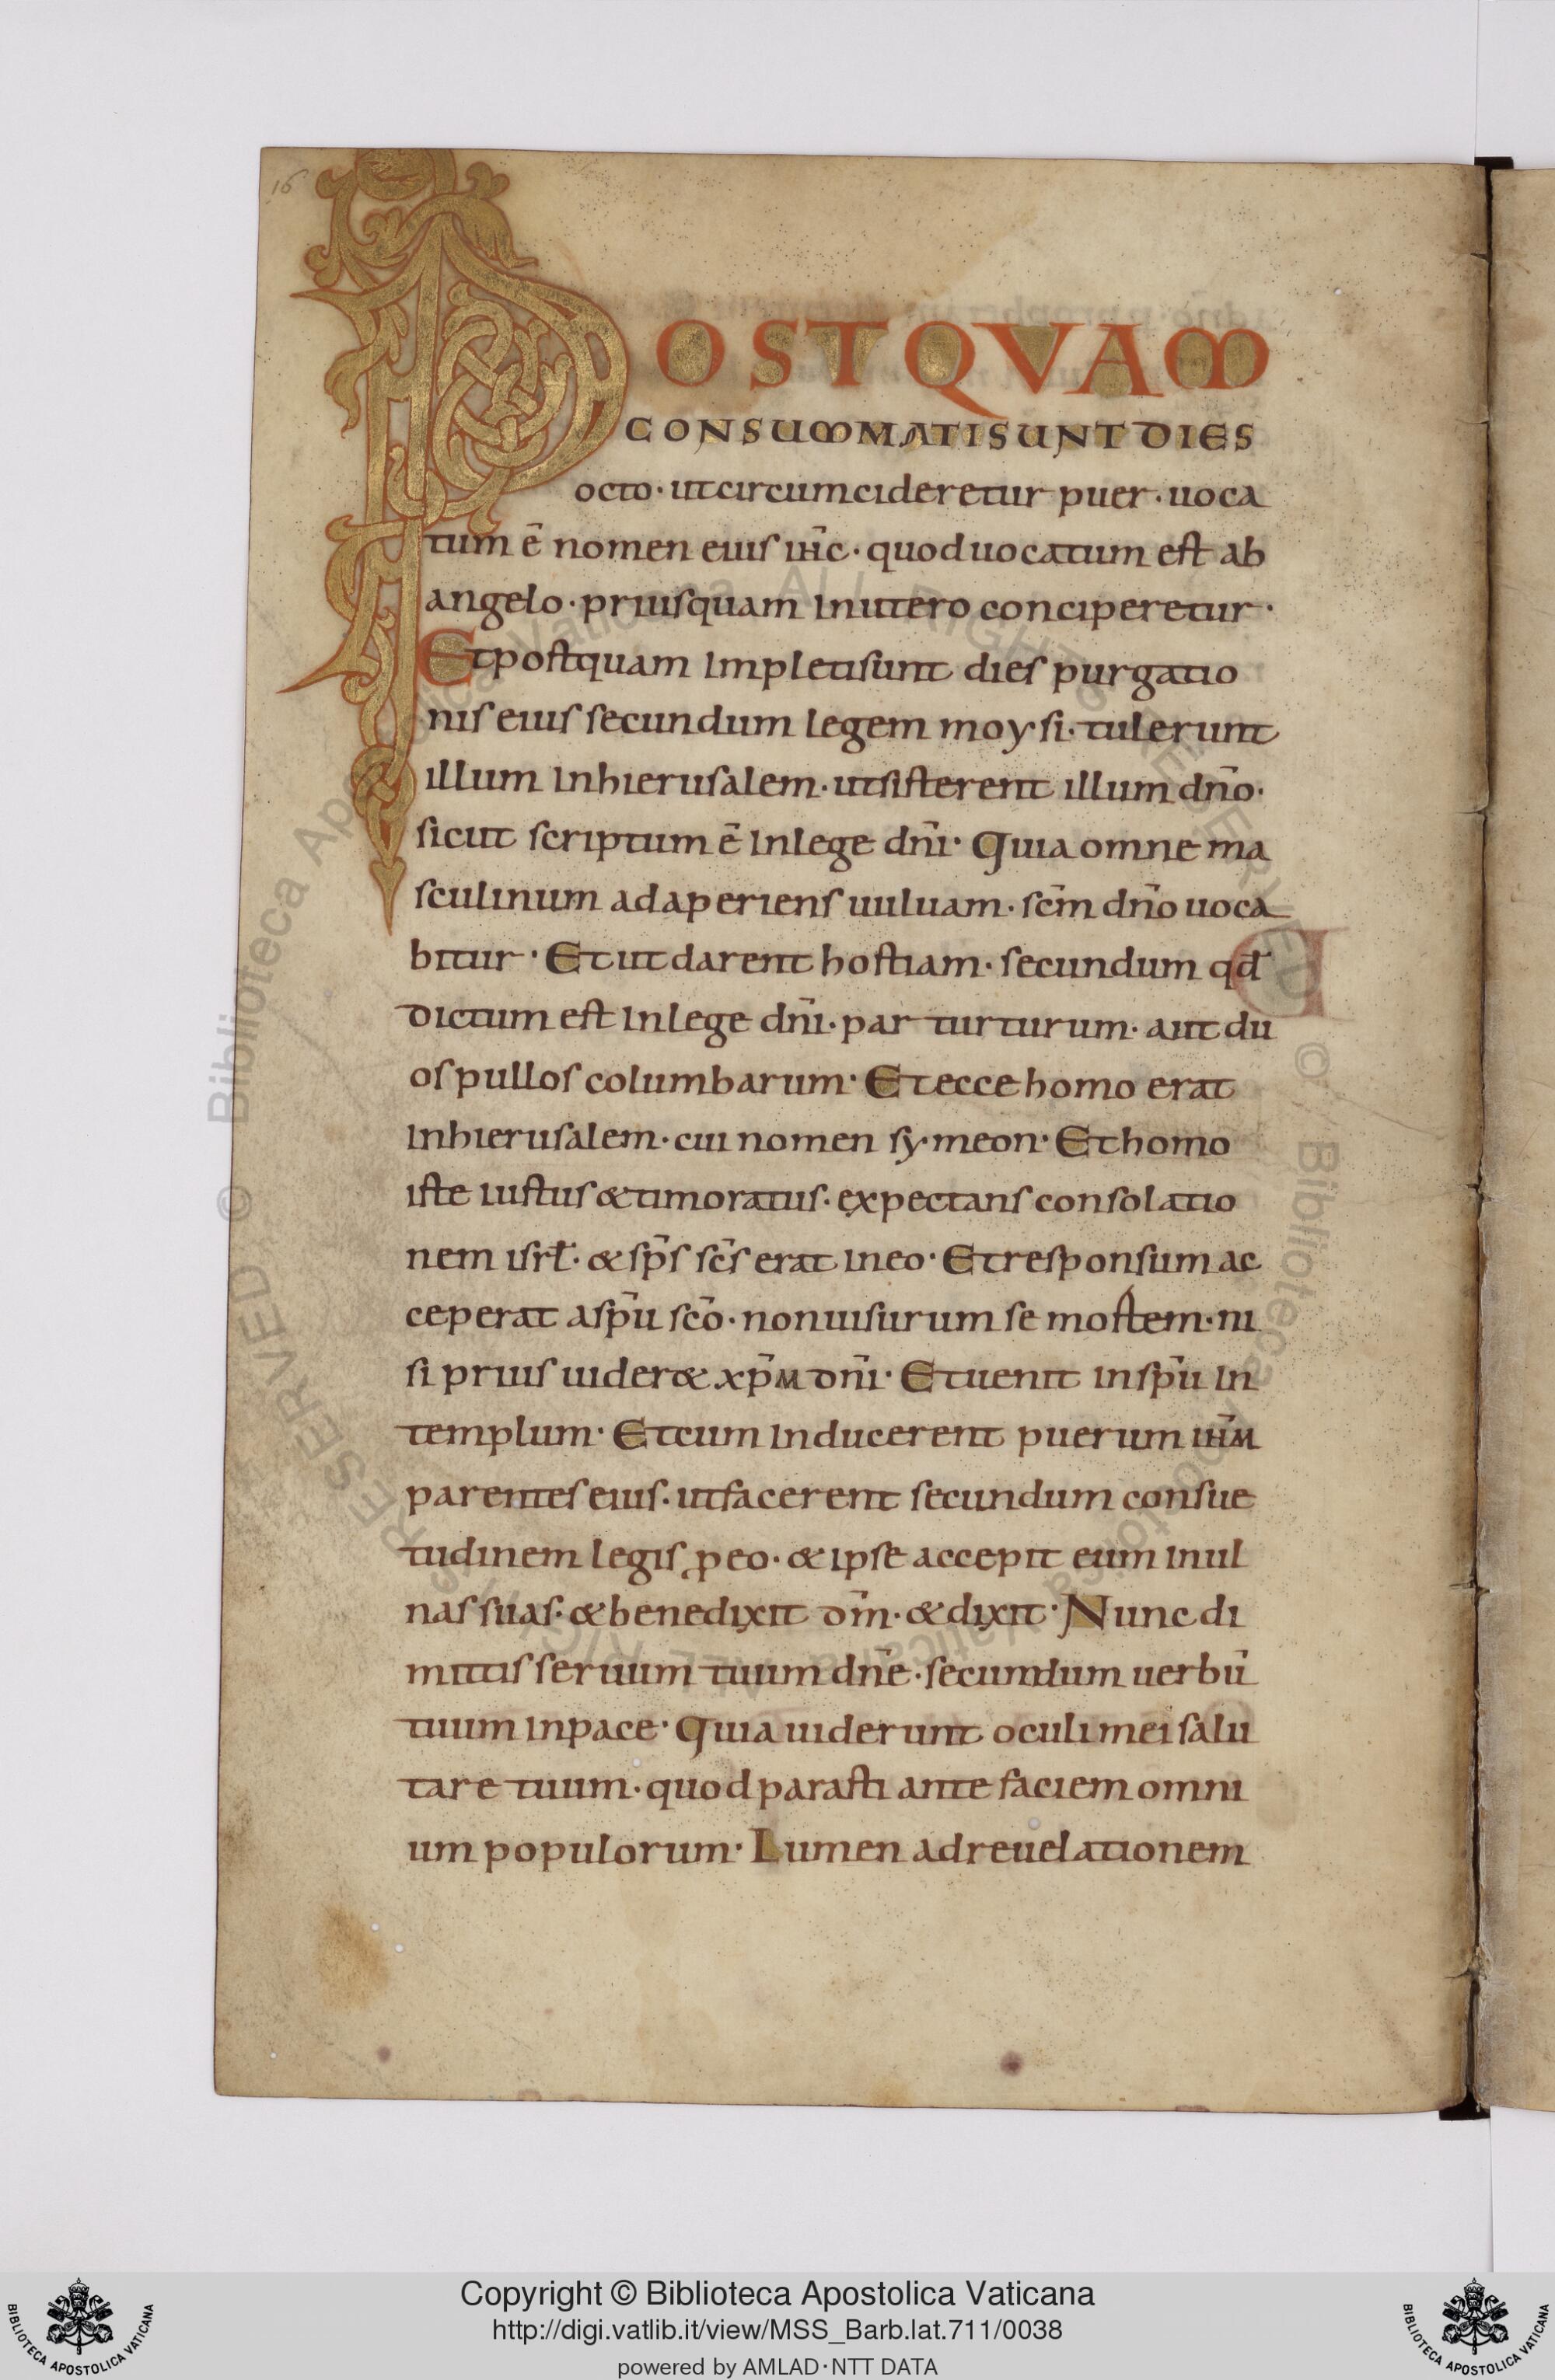 16
POSTQUAM
CONSUMMATI SUNT DIES
octo · ut circumcideretur puer · uoca
tum ē nomen eius ih̄c · quod uocatum est ab
angelo · priusquam in utero conciperetur ·
Et postquam impleti sunt dies purgatio
nis eius secundum legem moysi · tulerunt
illum in hierusalem · ut sisterent illum dn̄o ·
sicut scriptum ē in lege dn̄i · Quia omne ma
sculinum adaperiens uuluam · sc̄m dn̄o uoca
bitur · Et ut darent hostiam · secundum qd̄
dictum est in lege dn̄i · par turturum · aut du
os pullos columbarum · Et ecce homo erat
in hierusalem · cui nomen symeon · Et homo
iste iustus & timoratus · expectans consolatio
nem isrł · & sp̄s sc̄s erat in eo · Et responsum ac
ceperat a sp̄u sc̄o · non uisurum se mortem · ni
si prius uider& xp̄m dn̄i · Et uenit in sp̄u in
templum · Et cum inducerent puerum ih̄m
parentes eius · ut facerent secundum consue
tudinem legis ꝓ eo · & ipse accepit eum in ul
nas suas · & benedixit dm̄ · & dixit · Nunc di
mittis seruum tuum dn̄e · secumdum uerbū
tuum in pace · Quia uiderunt oculi mei salu
tare tuum · quod parasti ante faciem omni
um populorum · Lumen ad reuelationem
© Biblioteca Apostolica Vaticana ALL RIGHTS RESERVED
Copyright © Biblioteca Apostolica Vaticana
http://digi.vatlib.it/view/MSS_Barb.lat.711/0038
powered by AMLAD · NTT DATA
BIBLIOTECA APOSTOLICA VATICANA
BIBLIOTECA APOSTOLICA VATICANA